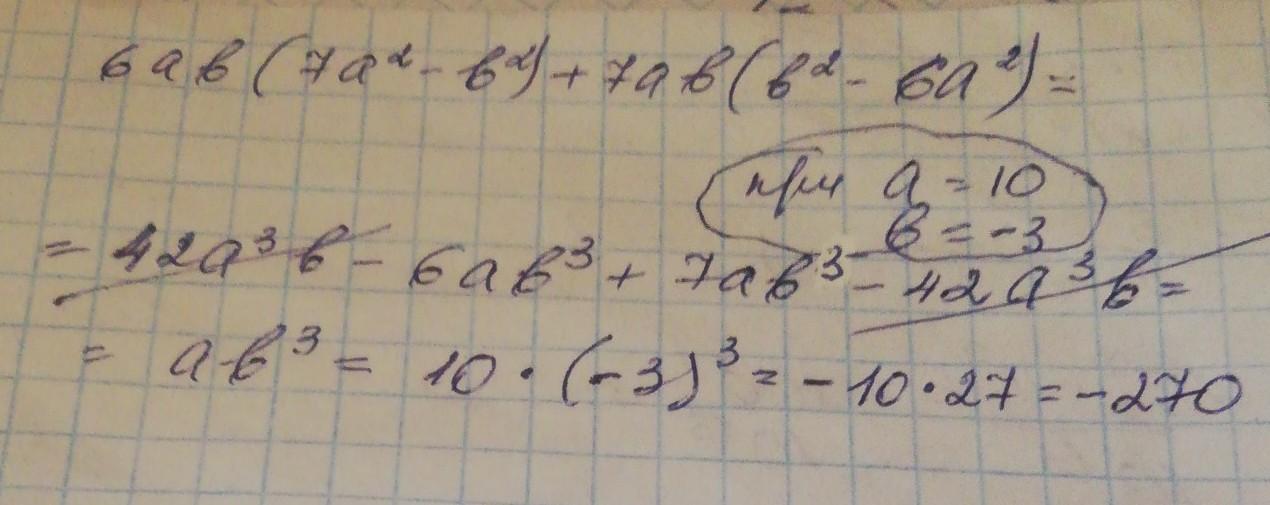 6ab(7a² - b²) + 7ab(b² - 6a²) =
при a = 10
b = -3
= 42a³b - 6ab³ + 7ab³ - 42a³b =
= ab³ = 10 · (-3)³ = -10 · 27 = -270